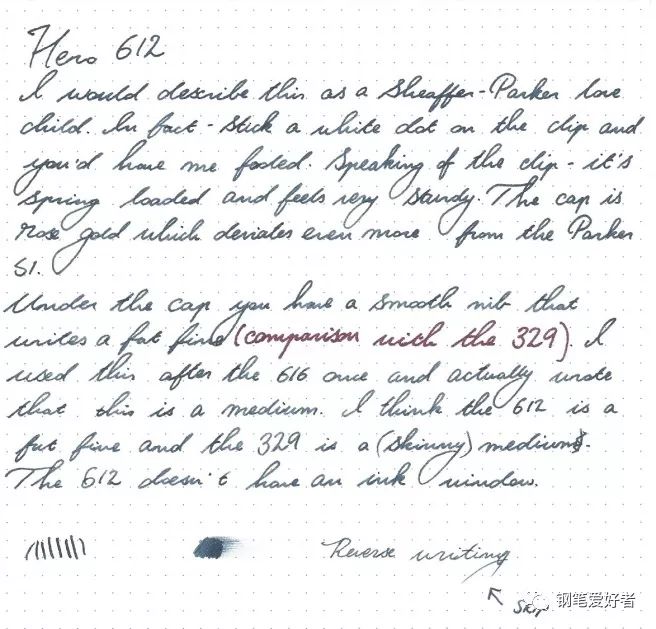 Hero 612
I would describe this as a Sheaffer-Parker love
child. In fact - stick a white dot on the clip and
you'd have me fooled. Speaking of the clip - it's
spring loaded and feels very sturdy. The cap is
rose gold which deviates even more from the Parker
51.
Under the cap you have a smooth nib that
writes a fat fine (comparison with the 329). I
used this after the 616 once and actually wrote
that this is a medium. I think the 612 is a
fat fine and the 329 is a (skinny) medium.
The 612 doesn't have an ink window.
Reverse writing
skip
钢笔爱好者